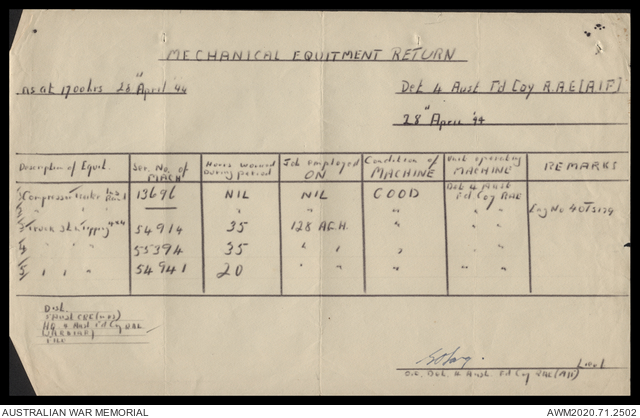 MECHANICAL EQUITMENT RETURN
as at 1700 hrs 28" April '44
Det 4 Aust Fd Coy R.A.E [A.I.F]
28" April '44
Description of Equit. Ser. No. of MACH Hours worked During period Job employed ON Condition of MACHINE Unit operating MACHINE REMARKS
Compressor Trailer 13696 NIL NIL GOOD Det 4 Aust Fd Coy RAE
" " " " " Eng No
Truck 3 Ton Tipping 4x4 54914 35 128 A.G.H. " " "
" " " 55394 35 " " " " "
" " " 54941 20 " " " " "
Dist.
HQ 4 Aust Fd Coy RAE
WAR DIARY
FILE
Lieut
O.C. Det 4 Aust Fd Coy RAE (AIF)
AUSTRALIAN WAR MEMORIAL AWM2020.71.2502